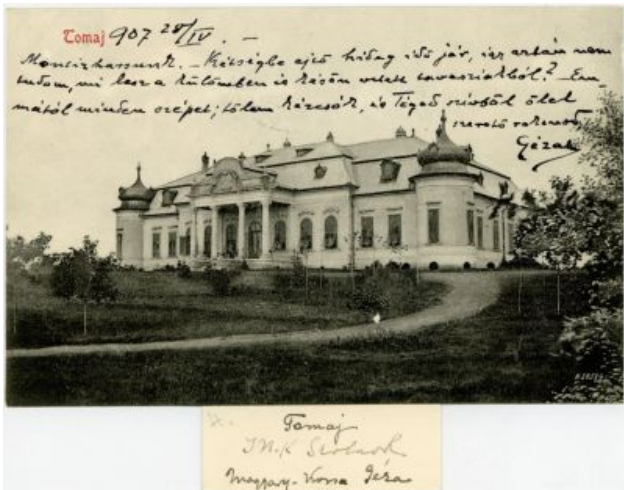 Tomaj 907 28/IV. –
– Kétségbe ejtő hideg idő jár, így aztán nem
tudom, mi lesz a különben is későn vetett tavasziakból? – Em-
mától minden szépet; tőlem kézcsók, és Téged szívből ölel
szerető rokonod
Géza
Tomaj
J.N.K Szolnok
Magyary-Kossa Géza